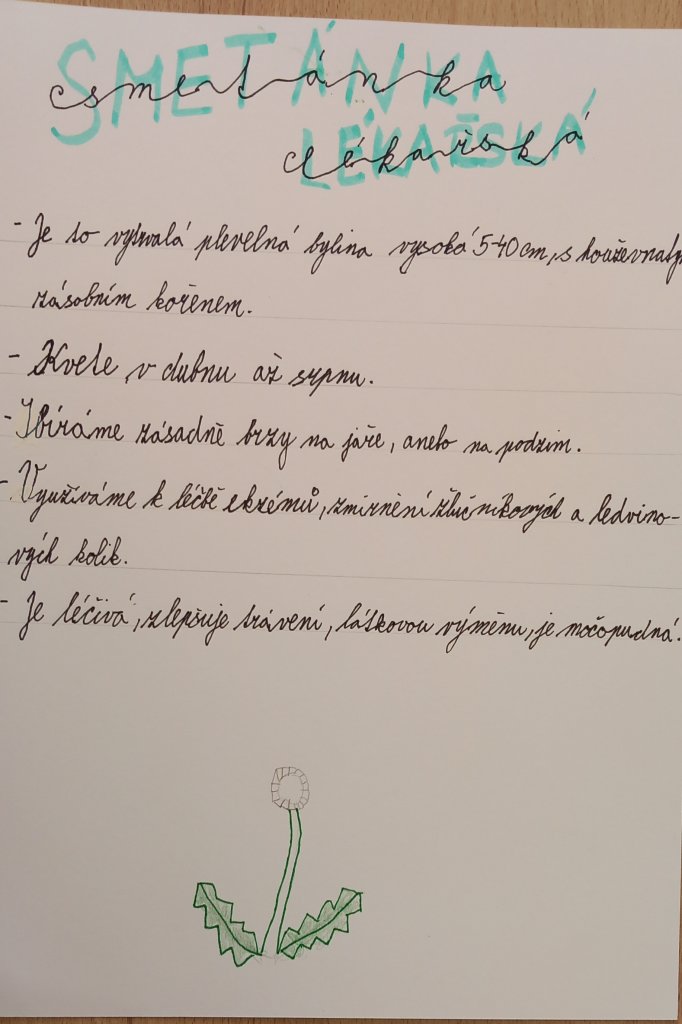 SMETÁNKA
smetánka
LÉKAŘSKÁ
lékařská
- Je to vytrvalá plevelná bylina vysoká 5-40cm, s houževnatý
zásobním kořenem.
- Kvete v dubnu až srpnu.
- Zbíráme zásadně brzy na jaře, anebo na podzim.
- Využíváme k léčbě ekzémů, zmírnění žlučníkových a ledvino-
vých kolik.
- Je léčivá, zlepšuje trávení, látkovou výměnu, je močopudná.